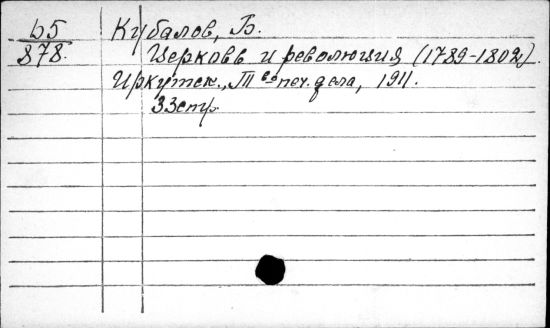 Б5
878.
Кубалов, Б.
Церковь и революция (1789-1802).
Иркутск., Т-во печ. дела, 1911.
33стр.